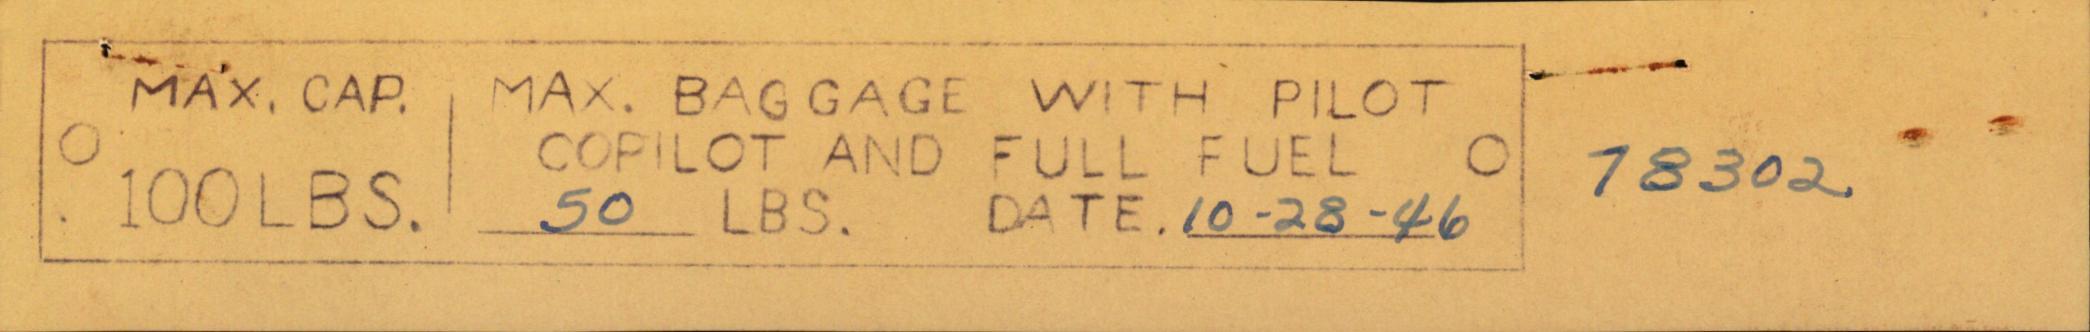 MAX. CAP.
100 LBS.
MAX. BAGGAGE WITH PILOT
COPILOT AND FULL FUEL
50 LBS. DATE. 10-28-46
78302